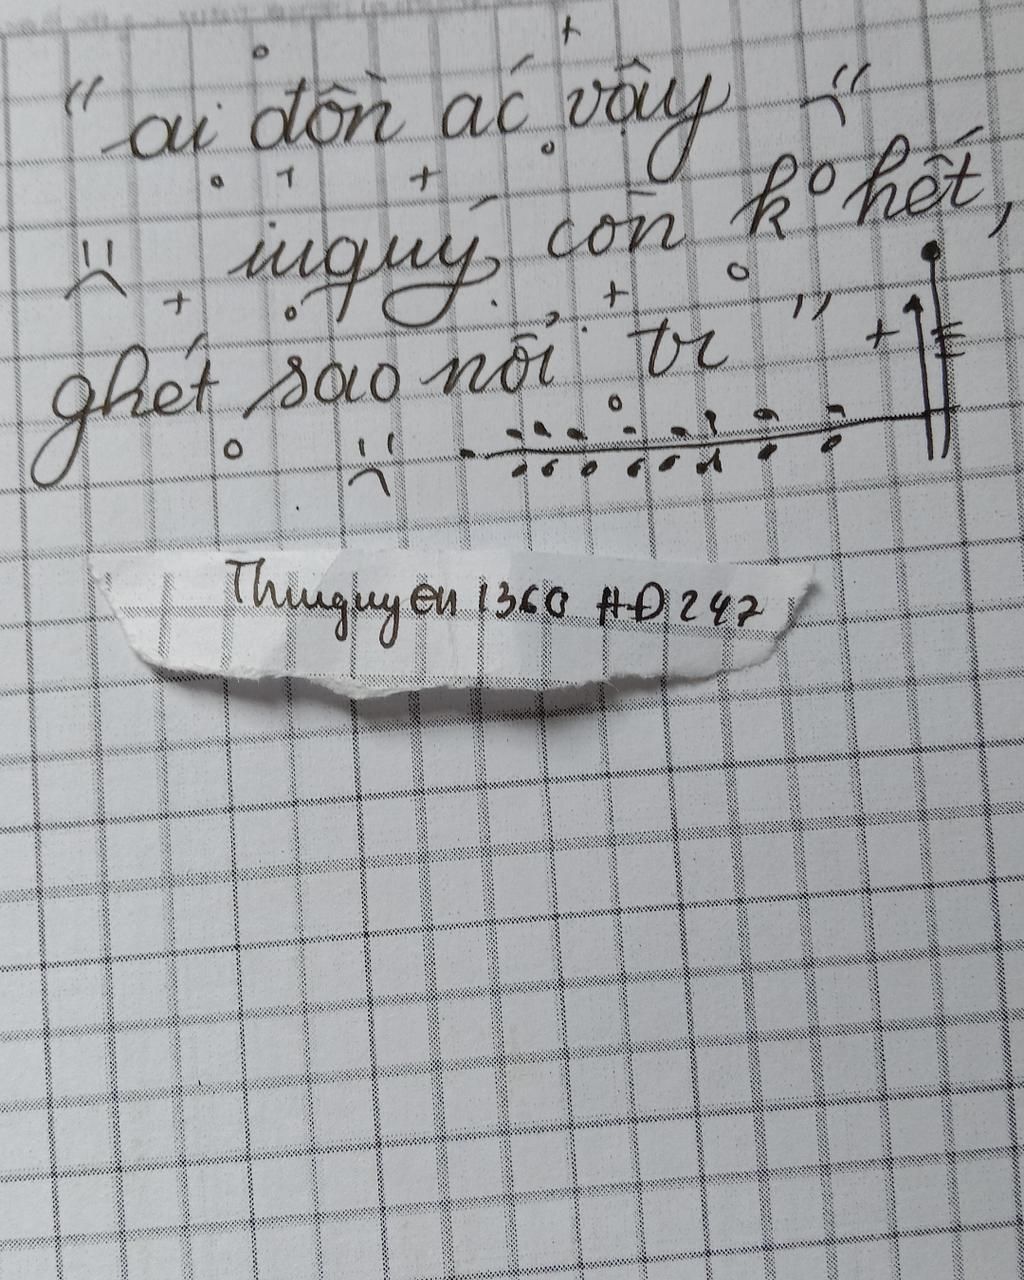 " ai đồn ác vậy "
iuquý còn k° hết,
ghét sao nổi tr "
Thuuguyen 1360 HĐ 247